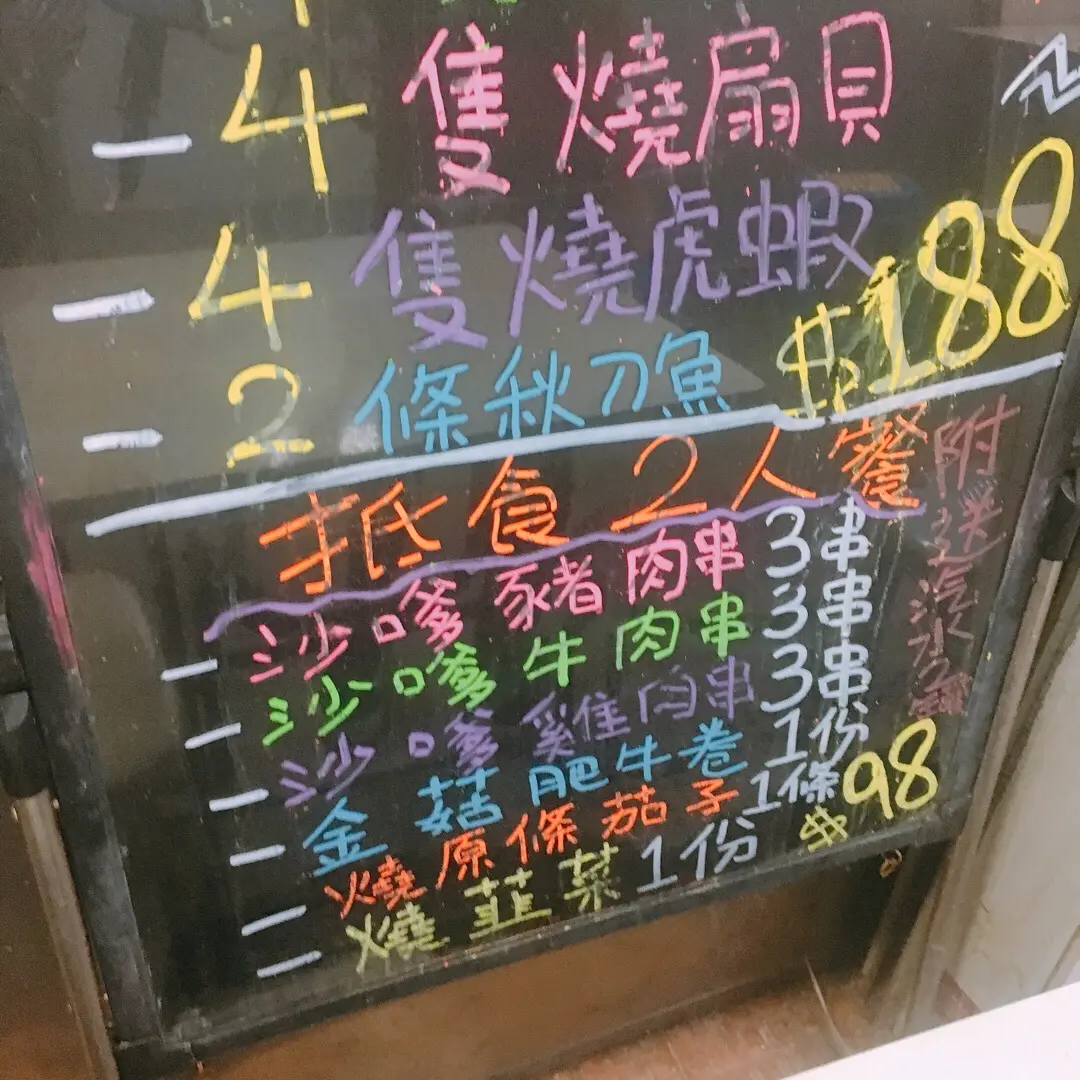 - 4隻燒扇貝
- 4隻燒虎蝦
- 2條秋刀魚 $188
抵食2人餐
- 沙嗲豬肉串 3串
- 沙嗲牛肉串 3串
- 沙嗲雞肉串 3串
- 金菇肥牛卷 1份
- 燒原條茄子 1條
- 燒韮菜 1份 $98
附送汽水2罐